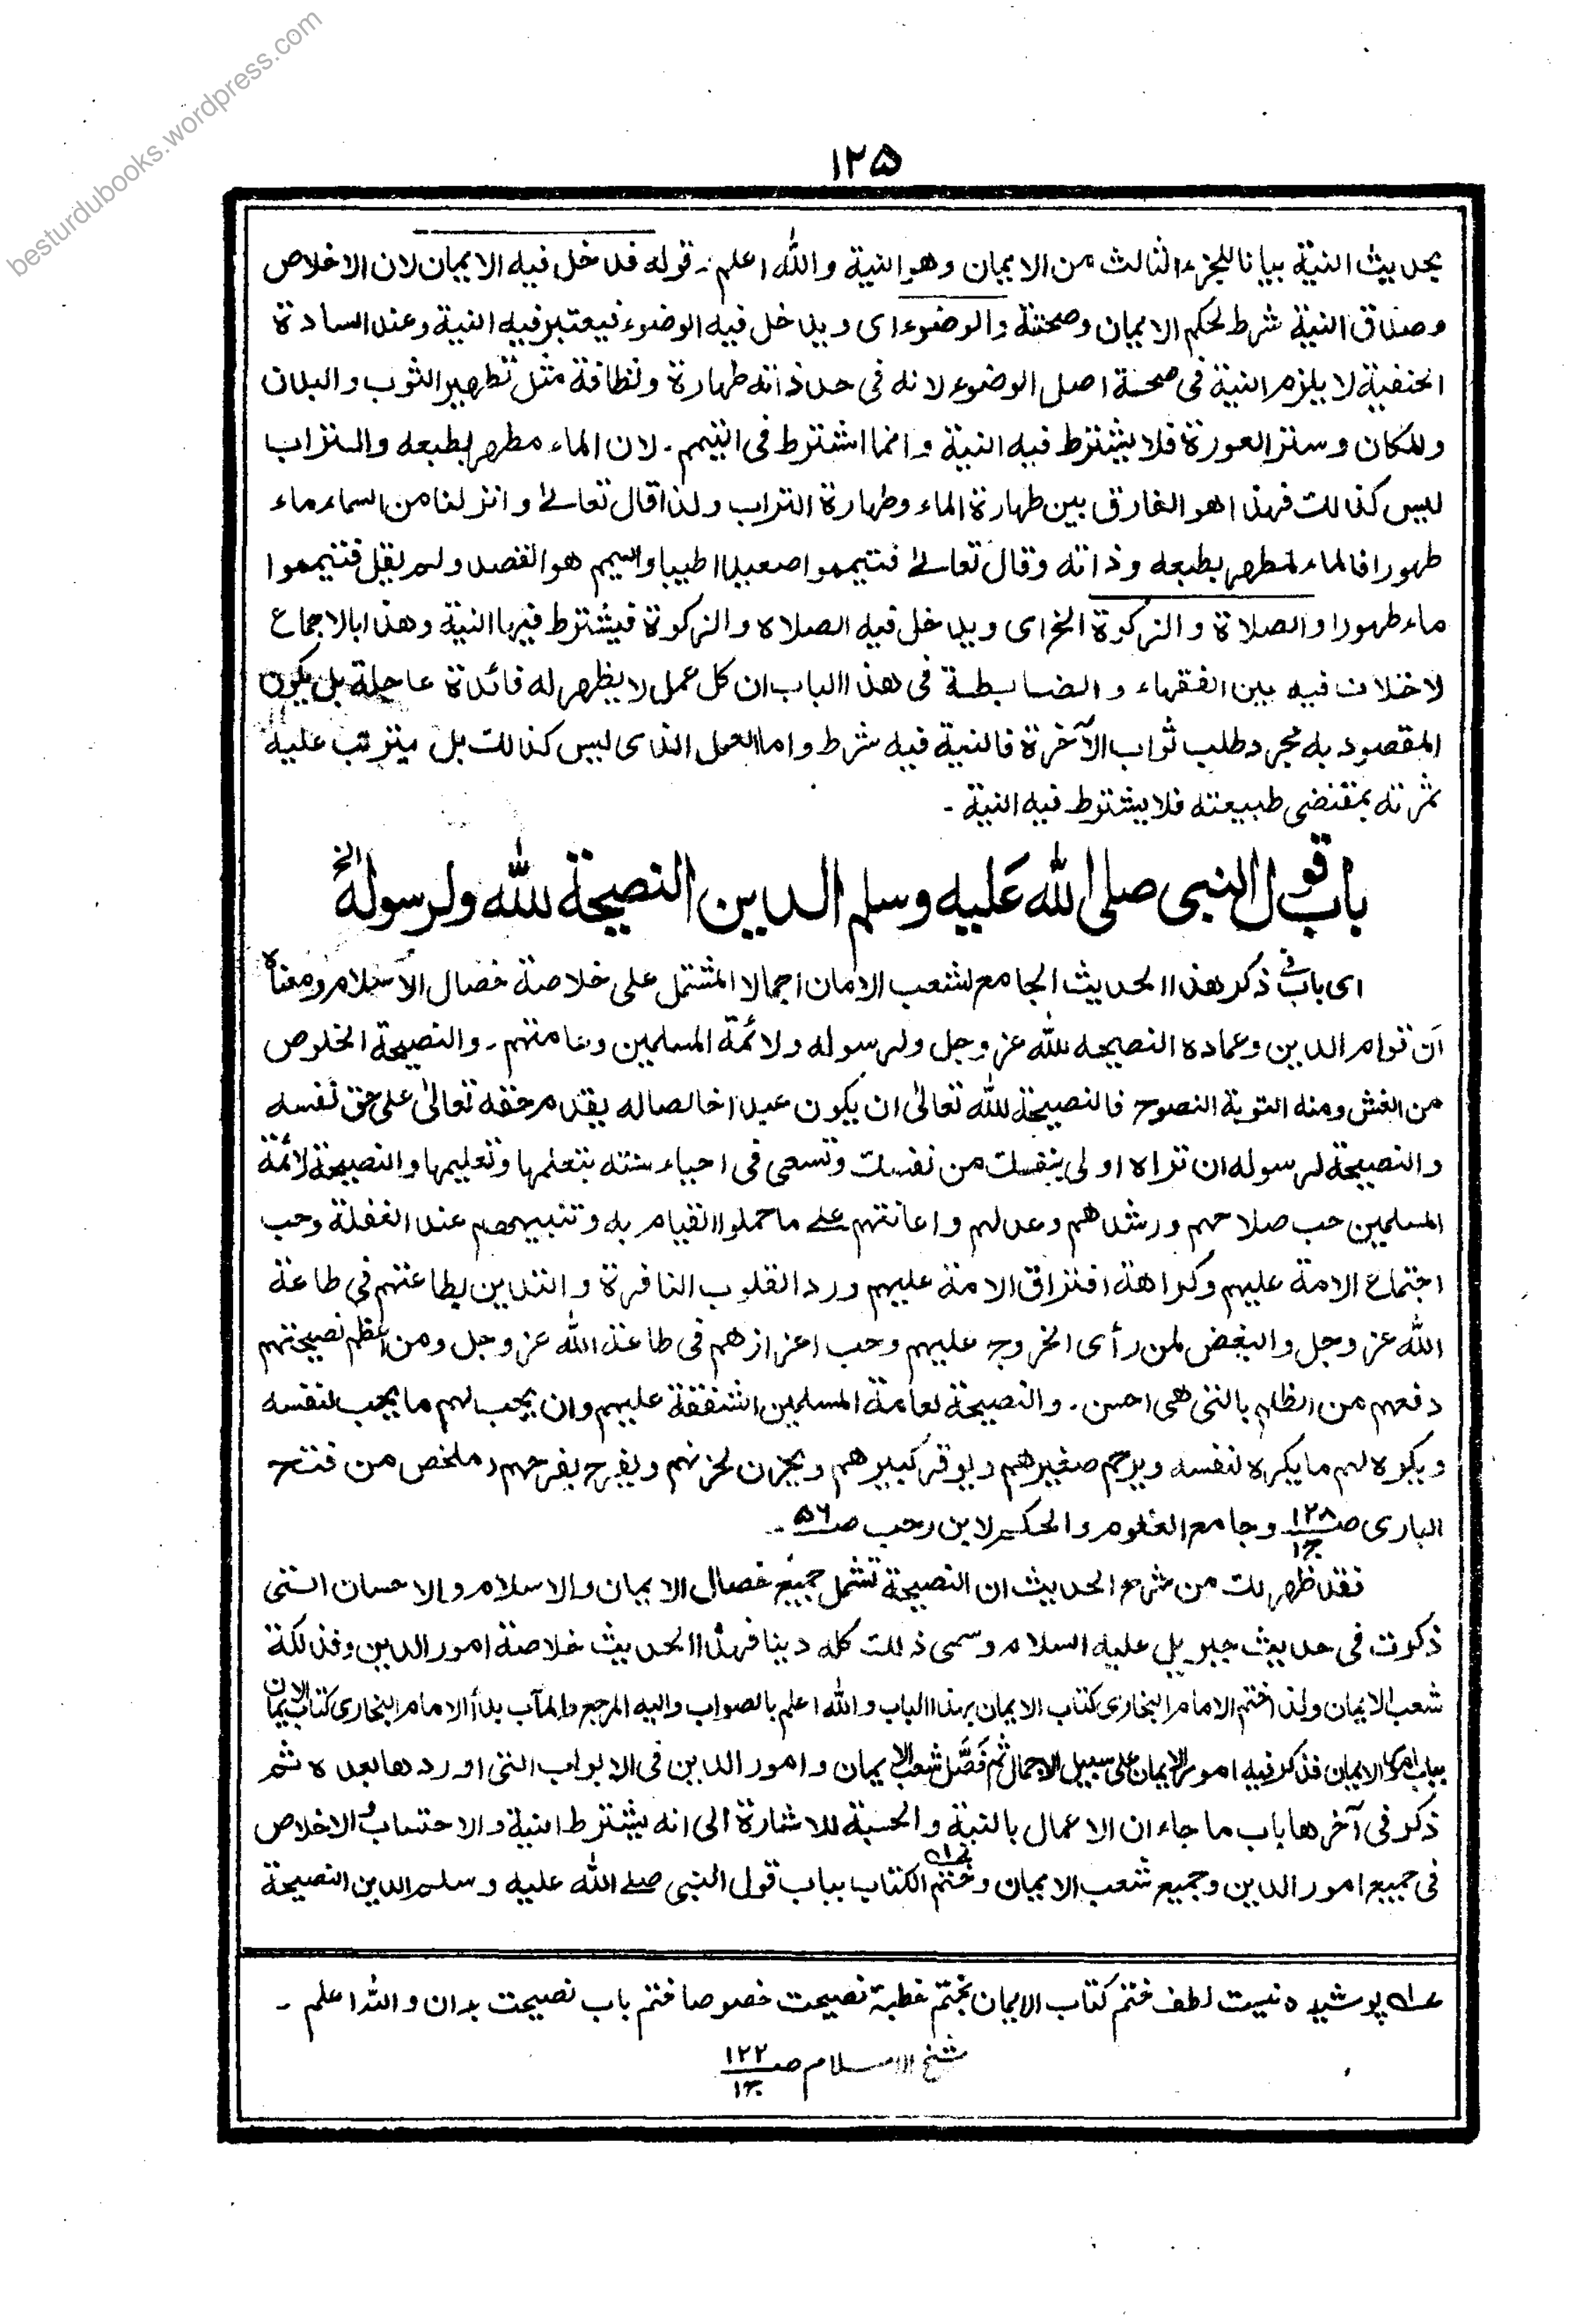 besturdubooks.wordpress.com
۱۲۵
بحديث النية بيانا للجزء الثالث من الايمان وهو النية والله اعلم۔ قوله فدخل فيه الايمان لان الاخلاص
وصداق النية شرط لحكم الايمان وصحته والوضوء اى ويدخل فيه الوضوء فيعتبر فيه النية وعند السادة
الحنفية لا يلزم النية فى صحة اصل الوضوء لانه فى حد ذاته طهارة ونظافة مثل تطهير الثوب والبدن
والمكان وستر العورة فلا يشترط فيه النية وانما اشترط فى التيمم۔ لان الماء مطهر بطبعه والتراب
ليس كذلك فهذا هو الفارق بين طهارة الماء وطهارة التراب ولذا قال تعالے وانزلنا من السماء ماء
طهورا فالماء مطهر بطبعه وذاته وقال تعالے فتيمموا صعيدا طيبا والتيمم هو القصد ولم يقل فتيمموا
ماء طهورا والصلاة والزكوة الخ اى ويدخل فيه الصلاه والزكوة فيشترط فيها النية وهذا بالاجماع
لا خلاف فيه بين الفقهاء والضابطة فى هذا الباب ان كل عمل لا يظهر له فائدة عاجلة بل يكون
المقصود به مجرد طلب ثواب الآخرة فالنية فيه شرط واما العمل الذى ليس كذلك بل يترتب عليه
ثمرته بمقتضى طبيعته فلا يشترط فيه النية۔
باب قول النبى صلى الله عليه وسلم الدين النصيحة لله ولرسوله الخ
اى باب فى ذكر هذا الحديث الجامع لشعب الامان اجمالا المشتمل على خلاصة خصال الاسلام ومعناه
ان قوام الدين وعماده النصيحه لله عز وجل ولرسوله ولائمة المسلمين وعامتهم۔ والنصيحة الخلوص
من الغش ومنه التوبة النصوح فالنصيحة لله تعالىٰ ان يكون عبدا خالصا له يقدم حقه تعالىٰ على حق نفسه
والنصيحة لرسوله ان تراه اولى بنفسك من نفسك وتسعى فى احياء سنته بتعلمها وتعليمها والنصيحة لائمة
المسلمين حب صلاحهم ورشدهم وعدلهم واعانتهم علے ما حملوا القيام به وتنبيههم عند الغفلة وحب
اجتماع الامة عليهم وكراهة افتراق الامة عليهم ورد القلوب النافرة والتدين بطاعتهم فى طاعة
الله عز وجل والبغض لمن رأى الخروج عليهم وحب اعزازهم فى طاعة الله عز وجل ومن اعظم نصيحتهم
دفعهم من الظلم بالتى هى احسن۔ والنصيحة لعامة المسلمين الشفقة عليهم وان يحب لهم ما يحب لنفسه
ويكره لهم ما يكره لنفسه ويرحم صغيرهم ويوقر كبيرهم ويحزن لحزنهم ويفرح بفرحهم، ملخص من فتح
البارى صـ ۱۲۸/ج۱ وجامع العلوم والحكم لابن رجب صـ ۵۶۔
فقد ظهر لك من شرح الحديث ان النصيحة تشمل جميع خصال الايمان والاسلام والاحسان التى
ذكرت فى حديث جبريل عليه السلام وسمى ذلك كله دينا فهذا الحديث خلاصة امور الدين وفذلكة
شعب الايمان ولذا ختم الامام البخارى كتاب الايمان بهذا الباب والله اعلم بالصواب واليه المرجع والمآب بدأ الامام البخارى كتاب الايمان
بباب امور الايمان فذكر فيه امور الايمان على سبيل الاجمال ثم فَصَّل شعب الايمان وامور الدين فى الابواب التى اوردها بعده ثم
ذكر فى آخرها باب ما جاء ان الاعمال بالنية والحسبة للاشارة الى انه يشترط النية والاحتساب والاخلاص
فى جميع امور الدين وجميع شعب الايمان وختم الكتاب بباب قول النبى صلے الله عليه وسلم الدين النصيحة
عــه پوشيده نيست لطف ختم كتاب الايمان بختم خطبۀ نصيحت خصوصا ختم باب نصيحت بدان والله اعلم۔
شيخ الاسلام صـ ۱۲۲/ج۱